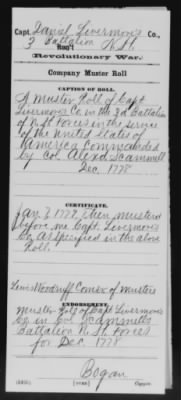 Capt. Daniel Livermore's Co.,
3 Battalion N.H.
Reg't
Revolutionary War.
Company Muster Roll
CAPTION OF ROLL.
A muster Roll of Capt
Livermore's Co. in the 3d Battalion
of N.H. Forces in the service
of the United States of
America commanded
by Col. Alexd Scammell
Dec. 1778
CERTIFICATE.
Jan. 7, 1779, then mustered
before me Capt. Livermore's
Co. as specified in the above
Roll.
Lewis Woodruff Comr of Musters
ENDORSEMENT.
Muster Roll of Capt Livermore's
Co. in Col. Scammell's
Battalion N.H. Forces
for Dec. 1778
Bogan
[OVER]
Copyist.